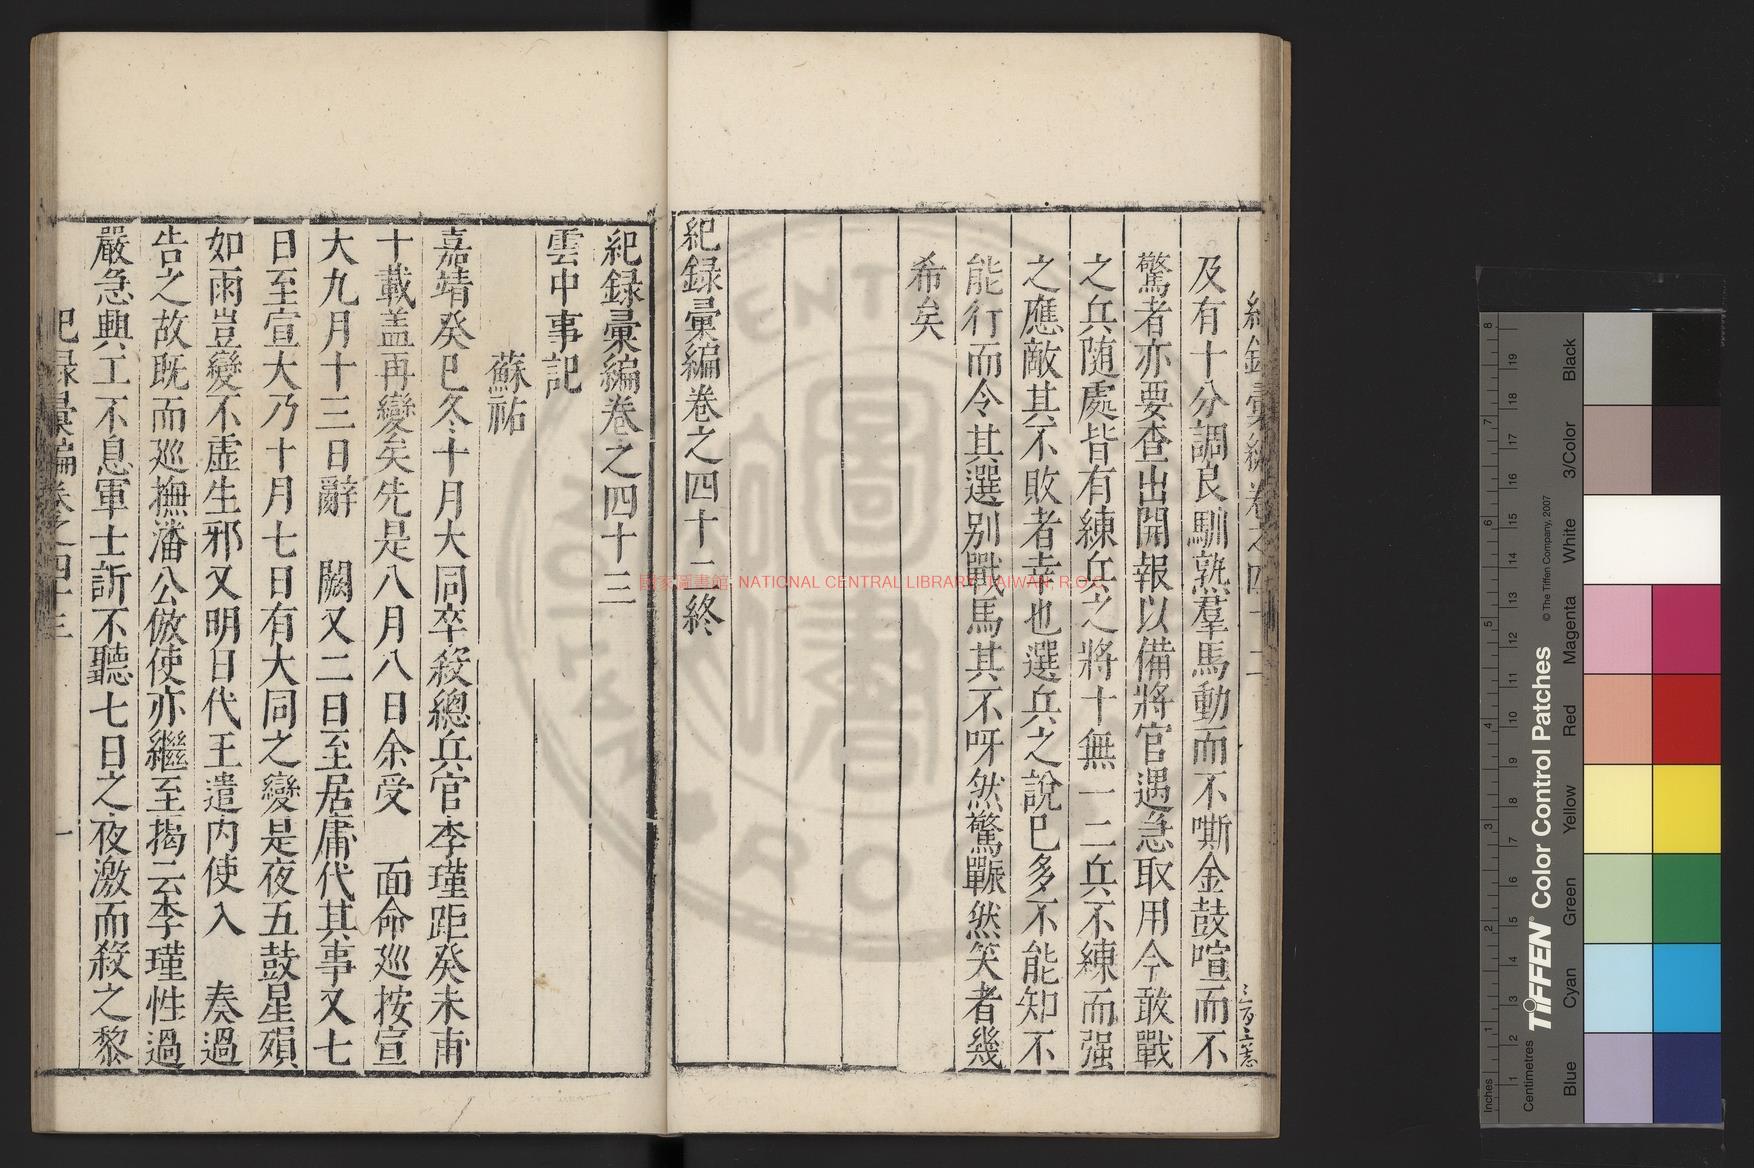 及有十分調良馴熟羣馬動而不嘶金鼓喧而不
驚者亦要查出開報以備將官遇急取用今敢戰
之兵隨處皆有練兵之將十無一二兵不練而强
之應敵其不敗者幸也選兵之說已多不能知不
能行而令其選别戰馬其不呀然驚冁然笑者幾
希矣
紀録彚編卷之四十二終
紀録彚編卷之四十三
雲中事記
蘇祐
嘉靖癸巳冬十月大同卒殺總兵官李瑾距癸未甫
十載盖再變矣先是八月八日余受 面命巡按宣
大九月十三日辭 闕又二日至居庸代其事又七
日至宣大乃十月七日有大同之變是夜五鼓星殞
如雨豈變不虚生邪又明日代王遣内使入 奏過
告之故既而巡撫潘公倣使亦繼至揭云李瑾性過
嚴急興工不息軍士訴不聽七日之夜激而殺之黎
紀録彚編卷之四十三
一
國家圖書館 NATIONAL CENTRAL LIBRARY, TAIWAN, R.O.C.
TIFFEN® Color Control Patches
© The Tiffen Company, 2007
Inches
Centimetres
Blue
Cyan
Green
Yellow
Red
Magenta
White
3/Color
Black